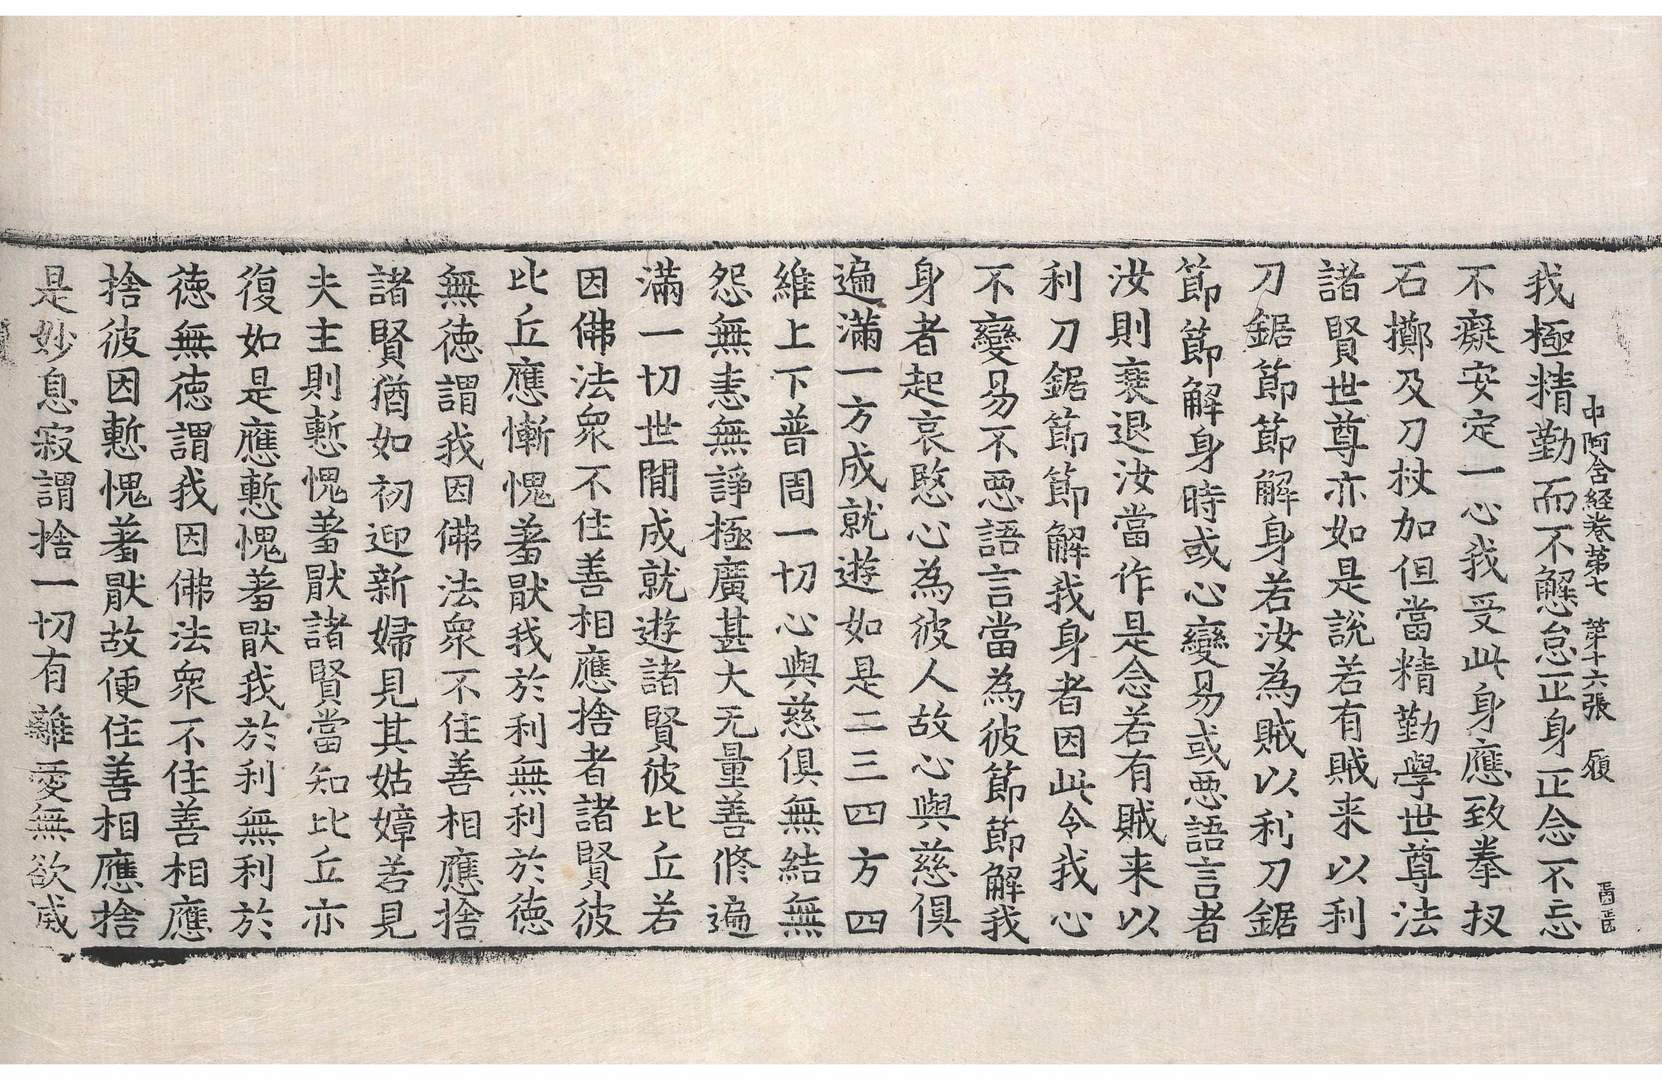 中阿含経卷第七　第十六張　履
我極精勤而不懈怠正身正念不忘
不癡安定一心我受此身應致拳扠
石擲及刀杖加但當精勤學世尊法
諸賢世尊亦如是說若有賊来以利
刀鋸節節解身若汝為賊以利刀鋸
節節解身時或心變易或悪語言者
汝則衰退汝當作是念若有賊来以
利刀鋸節節解我身者因此令我心
不變易不悪語言當為彼節節解我
身者起哀愍心為彼人故心與慈俱
遍滿一方成就遊如是二三四方四
維上下普周一切心與慈俱無結無
怨無恚無諍極廣甚大无量善修遍
滿一切世間成就遊諸賢彼比丘若
因佛法衆不住善相應捨者諸賢彼
比丘應慚愧羞猒我於利無利於徳
無徳謂我因佛法衆不住善相應捨
諸賢猶如初迎新婦見其姑嫜若見
夫主則慙愧羞猒諸賢當知比丘亦
復如是應慙愧羞猒我於利無利於
徳無徳謂我因佛法衆不住善相應
捨彼因慙愧羞猒故便住善相應捨
是妙息寂謂捨一切有離愛無欲滅